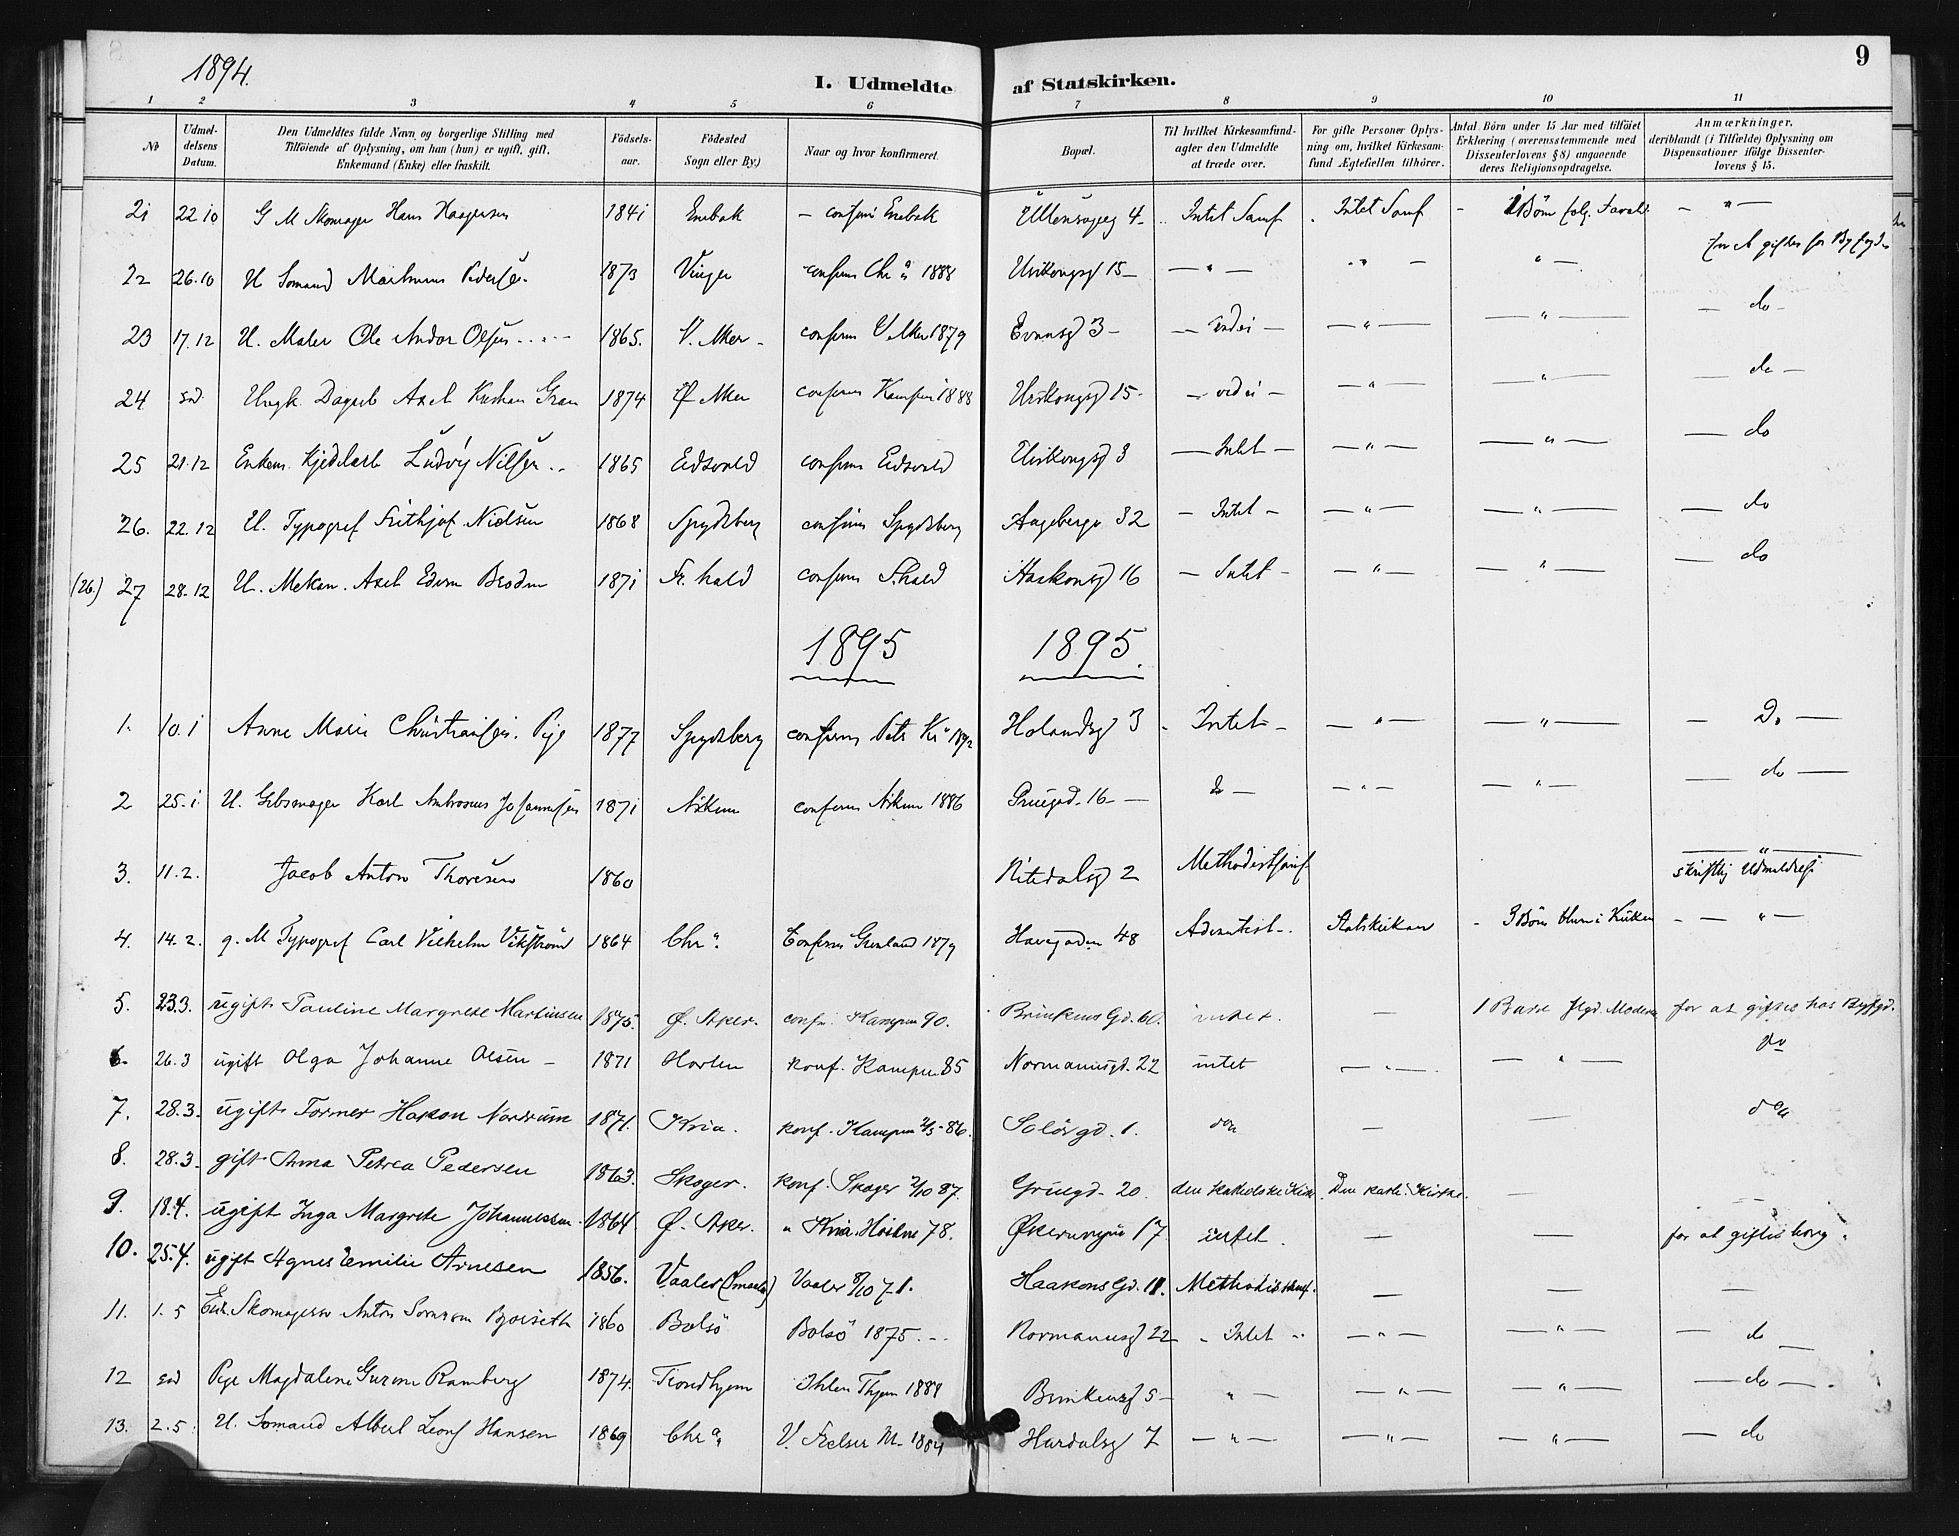 1894.
9
I. Udmeldte af Statskirken.
1 2 3 4 5 6 7 8 9 10 11
No
Udmel-
delsens
Datum.
Den Udmeldtes fulde Navn og borgerlige Stilling med
Tilföiende af Oplysning, om han (hun) er ugift, gift,
Enkemand (Enke) eller fraskilt.
Födsels-
aar.
Födested
Sogn eller By.)
Naar og hvor konfirmeret.
Bopæl.
Til hvilket Kirkesamfund
agter den Udmeldte
at træde over.
For gifte Personer Oplys-
ning om, hvilket Kirkesam-
fund Ægtefællen tilhörer.
Antal Börn under 15 Aar med tilföiet
Erklæring (overensstemmende med
Dissenterlovens § 8) angaaende
deres Religionsopdragelse.
Anmærkninger,
deriblandt (i Tilfælde) Oplysning om
Dispensationer ifölge Dissenter-
lovens § 15.
21 22 10 G M Skomager Hans Haagensen 1841 Enebak - confirm Enebak Ullensageg 4 - Intet Samf Intet Samf - Börn følg. - " -
for at giftes for Byfogd
22 26.10 U Sömand Pedersen 1873 Vinger confirm Chr a 1888 15 - — " — " — " —
23 17.12 U. Maler Ole Andor Olsen 1865. V. Aker - confirm V Aker 1879 3 - — — — " — — " — — do -
24 Axel Gran 1874 Ø Aker confirm Kampen 1888 15 - — — — " — — " — — do —
25 21.12 Enkem. Ludvig Nilsen 1865 Eidsvold confirm Eidsvold 3 — Intet — — " — — " — — do
26. 22.12 U. Typograf Frithjof Nielsen 1868 Spydeberg confirm Spydeberg Aagebergv. 32 - Intet - — " — — " — — do
(26.) 27 28.12 U. Mekan. Axel Edvin 1871 Fr. hald confirm F.hald Haakonsg 16 - Intet - — " — — " — — do
1895 1895.
1. 10.1 Anne Marie Christiansen. Pige 1877 Spydeberg confirm Petr Ki 1892 Holandsg 3 - Intet - — " — — " — — Do —
2 25.1 U. Gibsmager Karl Johannesen 1871 confirm 1886 Gruegad. 16 - do — — " — — " — — do —
3. 11.2. Jacob Anton Thoresen 1860 Nitedalsg 2 Methodistsamf — " —
skriftlig Udmeldelse
4. 14.2. g. M Typograf Carl Vilhelm 1864 Chr a Confirm Grönland 1879 Havegaden 48 Adventist - Statskirken - 3 Börn i Kirken - — " —
5. 23.3. ugift Pauline Margrete Martinsen 1875. Ø. Aker. conf. Kampen 90. Brinkens Gd. 60. intet. — 1 Barn flgd. Moderen for at giftes hos Byfgd.
6. 26.3 ugift Olga Johanne Olsen - 1871 Horten konf. Kampen 85 Normannsgd. 22 intet — " — — " — do
7. 28.3. ugift Hakon Nordrum 1871. Kria. konf. Kampen 86. Solörgd. 1. do — — do
8. 28.3. gift Anna Petrea Pedersen 1863. Skoger. konf. Skoger 2/10 87. Gruegd. 20. den katholske Kirke Den kath. Kirke. — —
9. 18.4. ugift Inga Margrete Johannessen. 1864 Ø. Aker. " Kria. 78. Økernveien 17 intet. — — for at giftes borg.
10. 25.4. ugift Agnes Emilie Arnesen 1856. Vaaler (Smaal) Vaaler 8/10 71. Haakons Gd. 11. Methodistsamf. — — —
11. 1.5 Skomagersv Anton 1860 Bolsö Bolsö 1875. - Normannsg 22 - Intet - — " — — " — — do
12 Pige Magdalene Ramberg 1874. Trondhjem Ihlen Thjem 1888 Brinkensg 5 - " — — " — — " — — do —
13. 2.5. U. Sömand Albert Hansen 1869 Chr a V. Frelser M. 1884 Hurdalsg 7 — " — — " — — " — — do